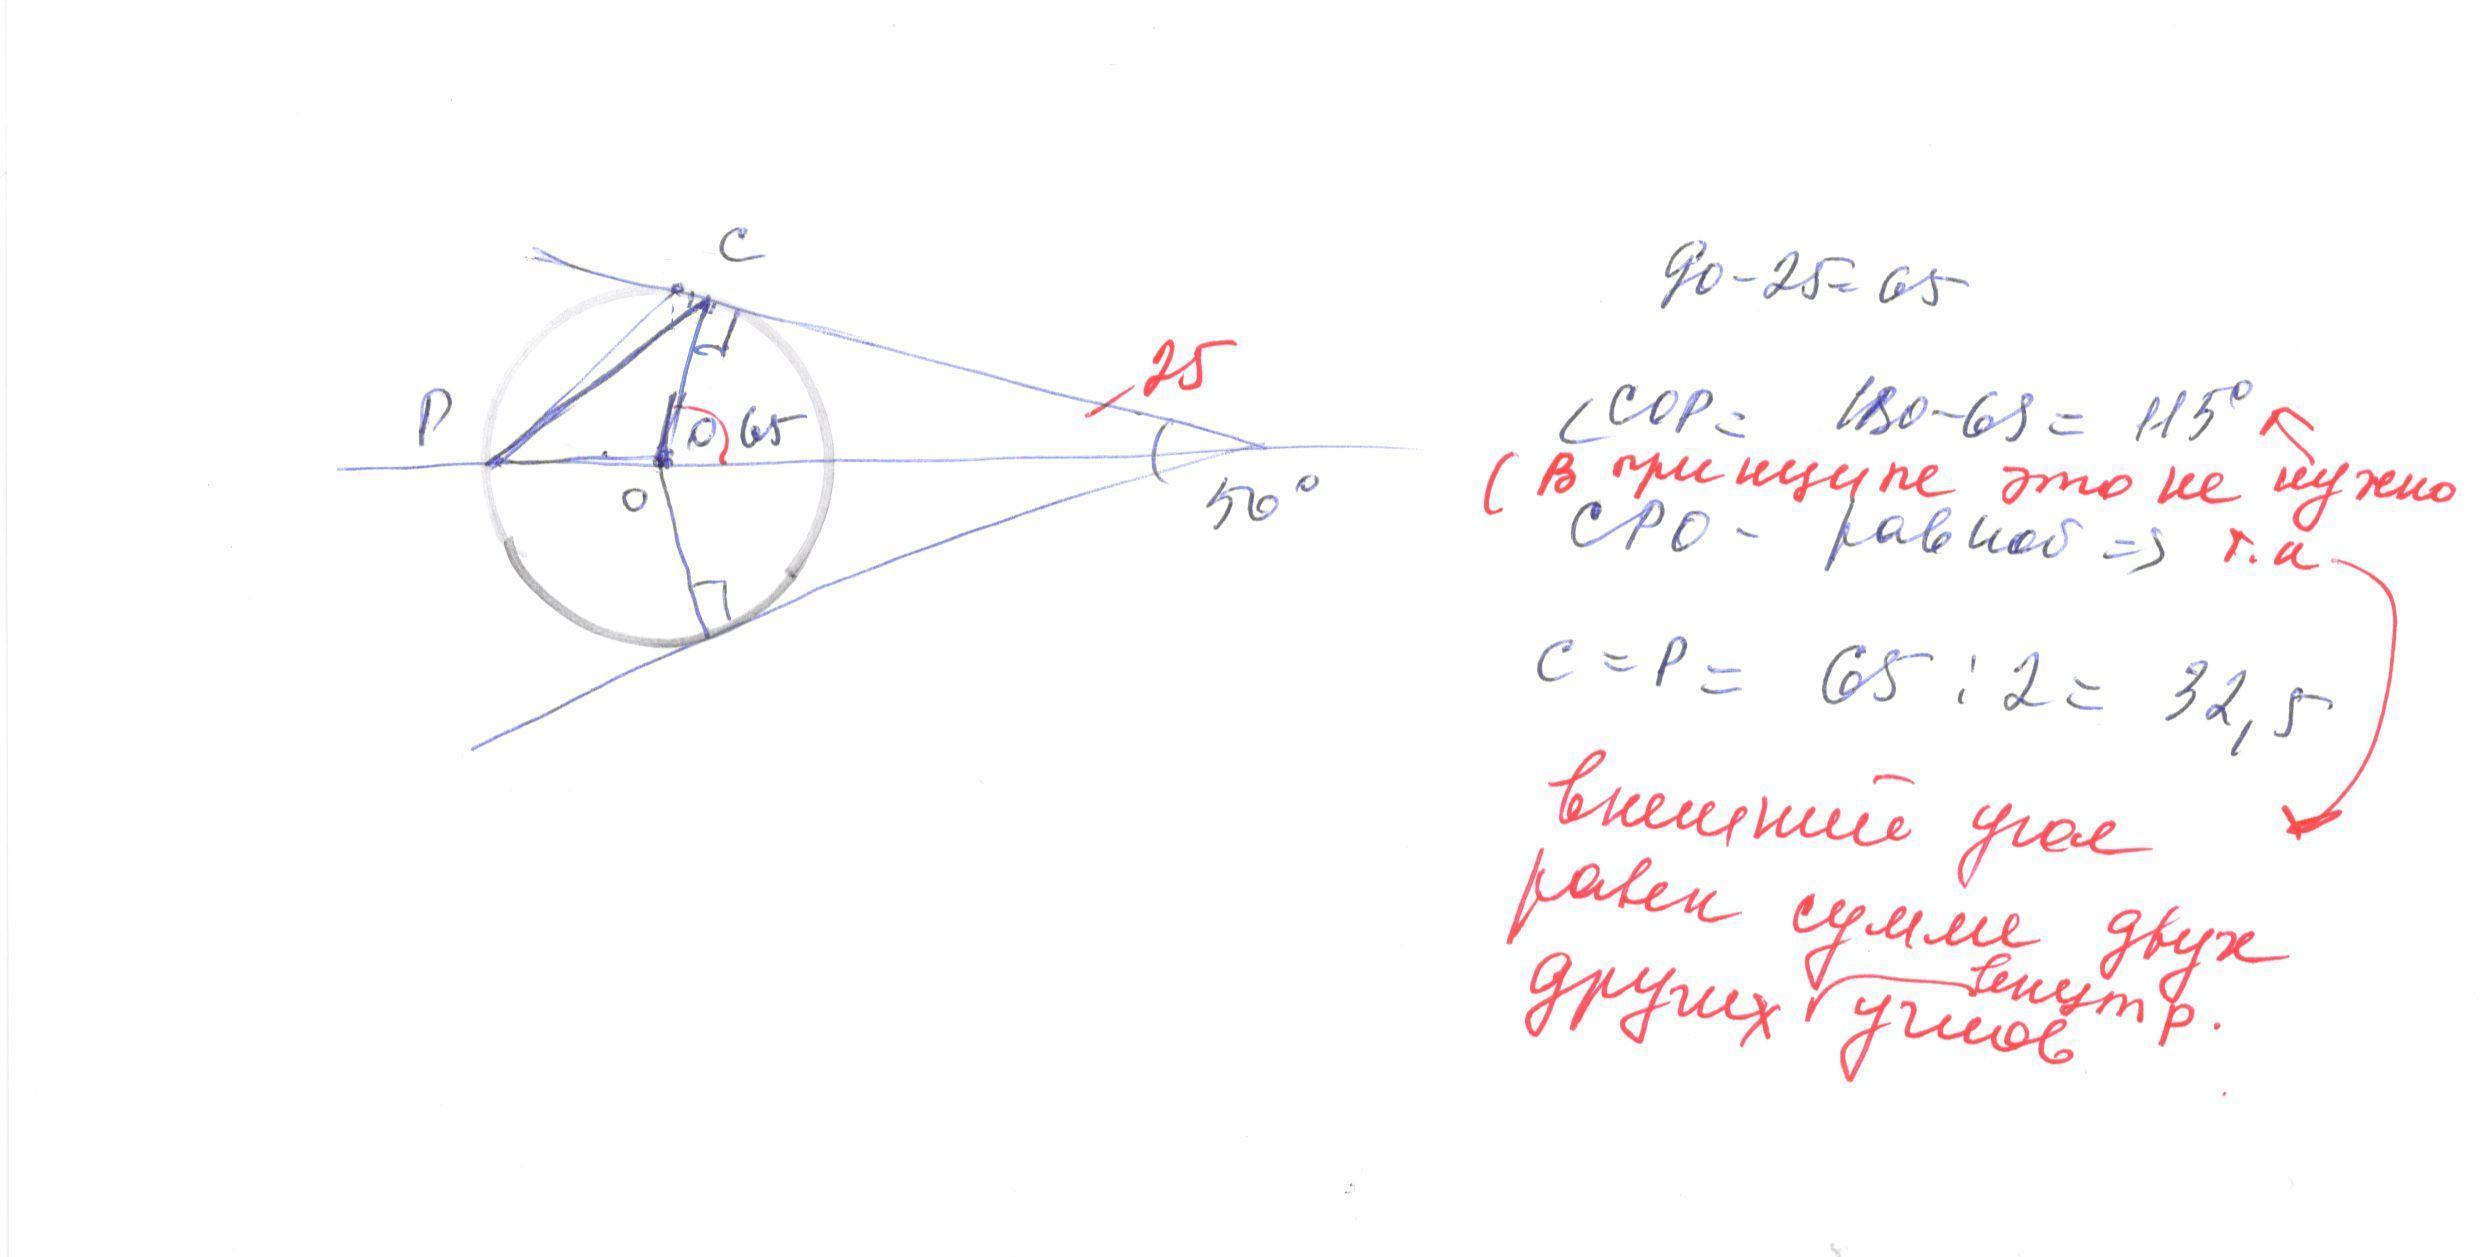 C
P
O 65
O
25
50°
90-25=65
∠COP= 180-65= 115°
(В принципе это не нужно
CPO - равноб => т.к
C=P= 65:2= 32,5
внешний угол
равен сумме двух
других внутр.
углов